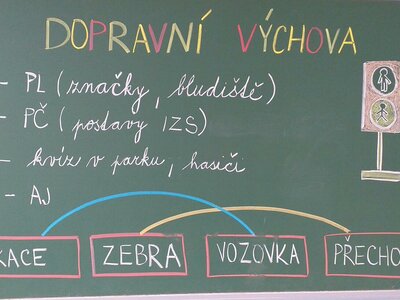 DOPRAVNÍ VÝCHOVA
- PL (značky, bludiště)
- PČ (postavy IZS)
- kvíz v parku, hasiči
- AJ
KACE ZEBRA VOZOVKA PŘECHO